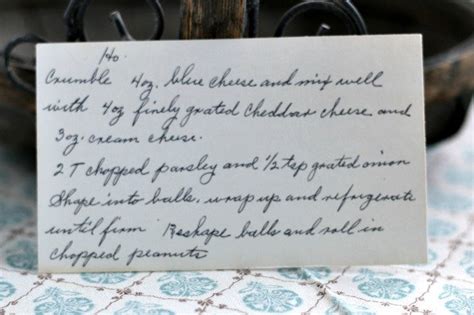 140.
Crumble 4oz. blue cheese and mix well
with 4 oz finely grated Cheddar cheese and
3 oz. cream cheese.
2 T chopped parsley and 1/2 tsp grated onion
Shape into balls, wrap up and refrigerate
until firm Reshape balls and roll in
chopped peanuts